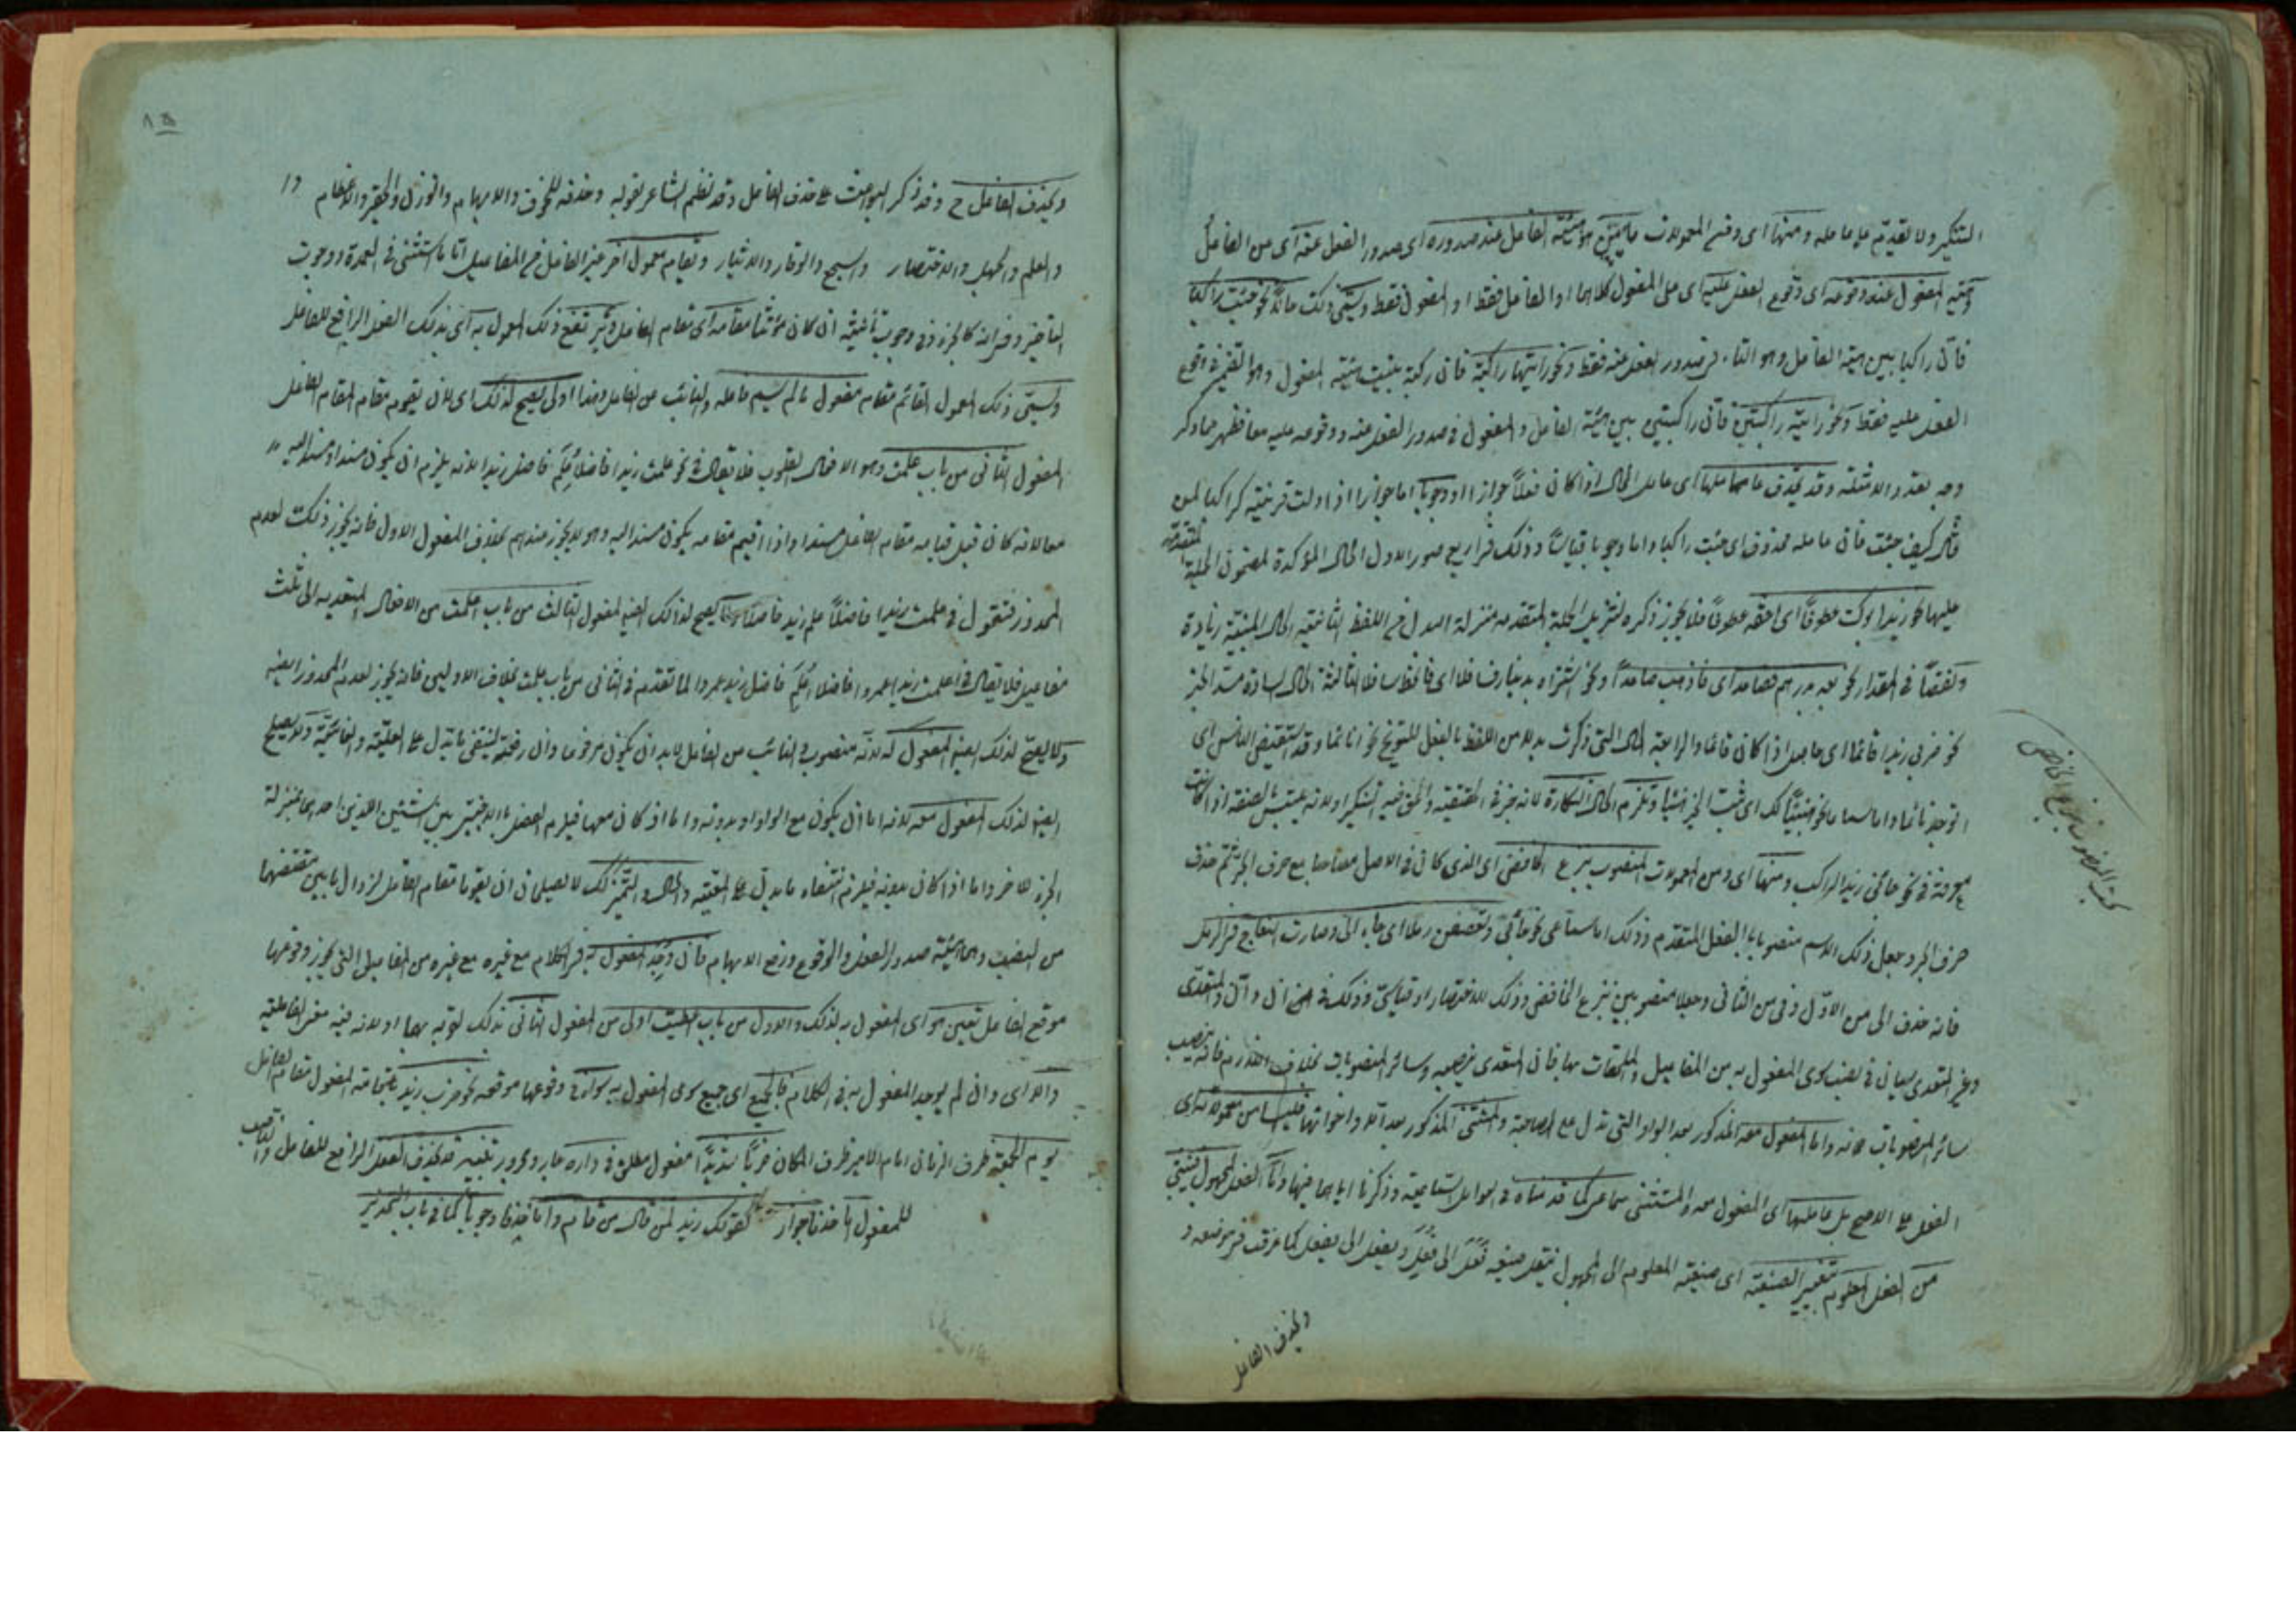 التنكير ولا تقديم على عامله ومنها اى ومن المعمولات ما يبين هيئة الفاعل عند صدوره اى صدور الفعل عنه اى من الفاعل
هيئة المفعول عند وقوعه اى وقوع الفعل عليه اى على المفعول كلاهما او الفاعل فقط او المفعول فقط ويسمى ذلك حالا نحو جئت راكبا
فان راكبا يبين هيئة الفاعل وهو التاء فى صدور الفعل عنه فقط ونحو رايتها راكبة فان راكبة يبين هيئة المفعول وهو الضمير فى وقوع
الفعل عليه فقط ونحو رايته راكبين فان راكبين يبين هيئة الفاعل والمفعول فى صدور الفعل عنه ووقوعه عليه معا فظهر مما ذكر
وجه تعدد الامثلة وقد يحذف عاملها اى عامل الحال اذا كان فعلا جوازا او وجوبا اما جوازا اذا دلت قرينة كراكبا لمن
قال كيف جئت فان عامله محذوف اى جئت راكبا واما وجوبا قياسا وذلك فى اربع صور الاول الحال المؤكدة لمضمون الجملة المتقدمة
عليها نحو زيد ابوك عطوفا اى احقه عطوفا فلا يجوز ذكره لتنزيل الجملة المتقدمة منزلة البدل من اللفظ الثانية الحال المبينة زيادة
ونقصا فى المقدار نحو بعه بدرهم فصاعدا اى فاذهب صاعدا ونحو اشتراه بدينار فسافلا اى فانحط سافلا الثالثة الحال السادة مسد الخبر
نحو ضربى زيدا قائما اى حاصل اذا كان قائما والرابعة الحال التى ذكرت بدلا من اللفظ بالفعل للتوبيخ نحو انائما وقد استيقض الناس اى
اتوجد نائما واما سماعا نحو هنيئا لك اى ثبت الخير هنيئا وتلزم الحال النكارة لانه خبر فى الحقيقة والحق فيه التنكير اولانه يلتبس بالصفة اذا كانت
معرفة فى نحو جائنى زيد الراكب ومنها اى ومن المعمولات المنصوب بنزع الخافض اى الذى كان فى الاصل مصاحبا مع حرف الجر ثم حذف
حرف الجر وجعل ذلك الاسم منصوبا بالفعل المتقدم وذلك اما سماعى نحو جائنى وتقصعن رملا اى جاء الى وصارت النعاج فى الرمل
فانه حذف الى من الاول وفى من الثانى وجعلا منصوبين بنزع الخافض وذلك للاختصار او قياسى وذلك فى ان وان والمتعدى
وغير المتعدى سيان فى نصب سوى المفعول به من المفاعيل والملحقات بها فان المتعدى ينصبه وسائر المنصوبات بخلاف اللازم فانه ينصب
سائر المنصوبات لانه واما المفعول معه المذكور بعد الواو التى تدل مع المصاحبة والمستثنى المذكور بعد الا واخواتها فليسا من معمولاته اى
الفعل على الاصح بل عاملهما اى المفعول معه والمستثنى سماعى كما قدمناه فى العوامل السماعية وذكرنا اياهما فيها واما الفعل المجهول فيبنى
من الفعل المعلوم بتغيير الصيغة اى صيغة المعلوم الى المجهول فينقل صيغة فعل الى فعل ويفعل الى يفعل كما عرفت فى موضعه و
ويحذف الفاعل
بحث المنصوب بنزع الخافض
ويحذف الفاعل ح وقد ذكر البواعث على حذف الفاعل وقد نظم الشاعر بقوله وحذفه للخوف والابهام والوزن والتحقير والاعظام
والعلم والجهل والاختصار والسجع والوقار والايثار ويقام معمول اخر غير الفاعل من المفاعيل الا ما استثنى فى العمدة ووجوب
التاخير وفى انه كالجزء وفى وجوب تأنيثه ان كان مؤنثا مقامه اى مقام الفاعل ويرتفع ذلك المعمول به اى بذلك الفعل الرافع للفاعل
ويسمى ذلك المعمول القائم مقامه مفعول ما لم يسم فاعله والنائب من الفاعل وهذا اولى ولا يصح لذلك اى لان يقوم مقام المقام الفاعل
المفعول الثانى من باب علمت وهو الافعال القلوب فلا يقال فى نحو علمت زيدا فاضلا علم فاضل زيدا لانه يلزم ان يكون مسندا ومسندا اليه
معا لانه كان قبل قيامه مقام الفاعل مسندا واذا اقيم مقامه يكون مسندا اليه وهو لا يجوز عندهم بخلاف المفعول الاول فانه يجوز ذلك لعدم
المحذور فتقول فى علمت زيدا فاضلا علم زيد فاضلا ولا يصح لذلك ايضا المفعول الثالث من باب اعلمت من الافعال المتعدية الى ثلث
مفاعيل فلا يقال فى اعلمت زيدا عمروا فاضلا اعلم فاضل زيدا عمروا لما تقدم فى الثانى من باب علمت بخلاف الاوليين فانه يجوز لعدم المحذور ايضا
ولا يصح لذلك ايضا المفعول له لانه منصوب والنائب من الفاعل لابد ان يكون مرفوعا وان رفعته لينتفى ما يدل على العلية والغائية ولا يصح
ايضا لذلك المفعول معه لانه اما ان يكون مع الواو او بدونه واما اذ كان معها فيلزم الفصل بالاجنبى بين الشيئين اللذين احدهما بمنزلة
الجزء للاخر واما اذا كان بدونه فيلزم انتفاء ما يدل على المعية والحال والتميز كذلك لا يصلحان ان يقوما مقام الفاعل لزوال ما يبين مقتضهما
من النصب وهما هيئة صدور الفعل والوقوع ورفع الابهام فان وجد المفعول به فى الكلام مع غيره مع غيره من المفاعيل التى يجوز وقوعها
موقع الفاعل تعين هو اى المفعول به لذلك والاول من باب اعطيت اولى من المفعول الثانى لذلك لقربه بها اولانه فيه معنى الفاعلية
والا اى وان لم يوجد المفعول به فى الكلام فالجميع اى جميع سوى المفعول به سواء فى وقوعها موقعه نحو ضرب زيد باقامة المفعول مقام الفاعل
يوم الجمعة ظرف الزمان امام الامير ظرف المكان ضربا شديدا مفعول مطلق فى داره جار ومجرور تنبيه قد يحذف الفعل الرافع للفاعل والناصب
للمفعول اما حذفا جوازا كقولك زيد لمن قال من قام واما حذفا وجوبا كما فى باب التحذير